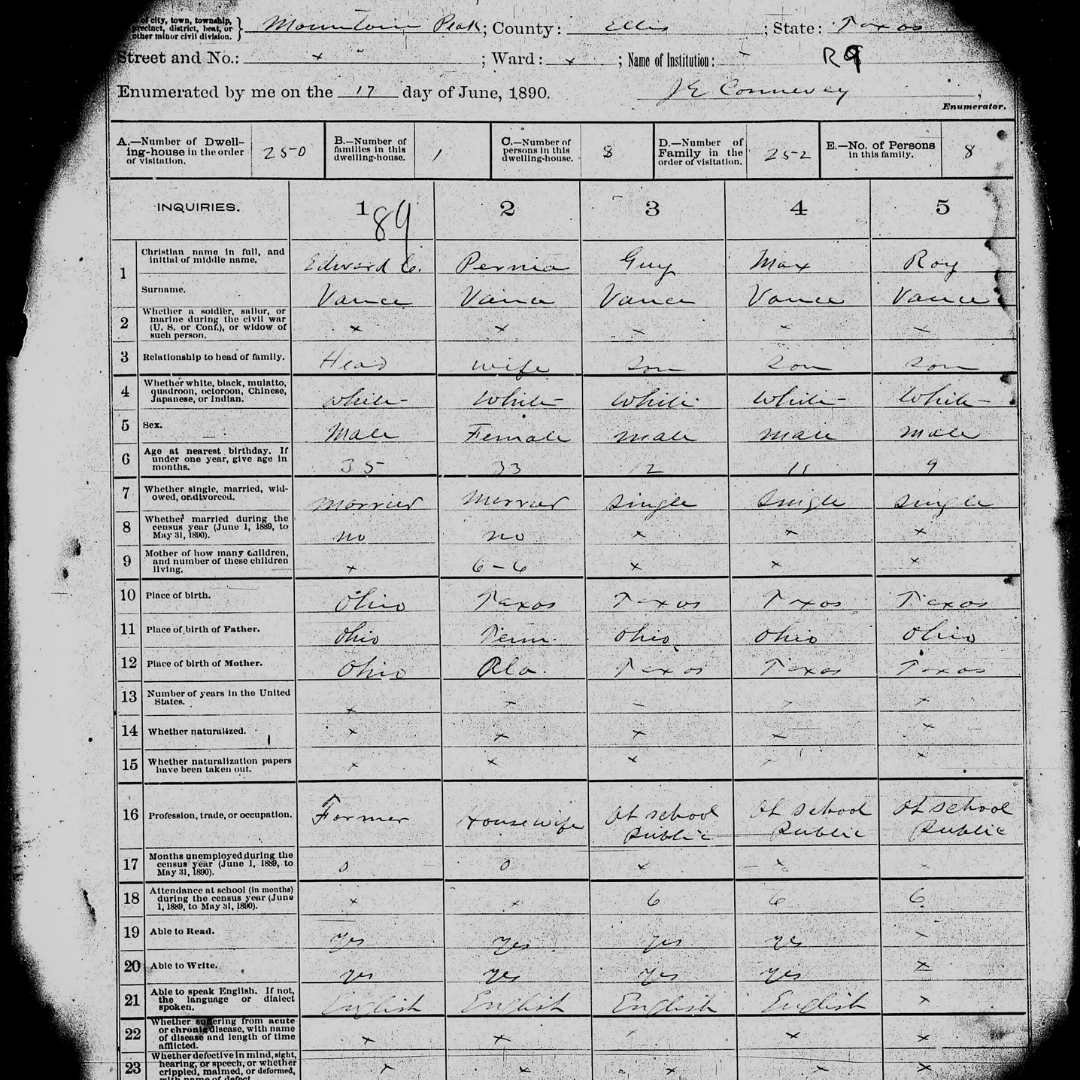 of city, town, township,
precinct, district, beat, or
other minor civil division. } Mountain Peak; County: Ellis; State: Texas
Street and No.: x ; Ward: x ; Name of Institution: R9
Enumerated by me on the 17 day of June, 1890. J E Connevey
Enumerator.
A.—Number of Dwell-
ing-house in the order
of visitation. 250
B.—Number of
families in this
dwelling-house. 1
C.—Number of
persons in this
dwelling-house. 8
D.—Number of
Family in the
order of visitation. 252
E.—No. of Persons
in this family. 8
INQUIRIES. 1 2 3 4 5
89
1 Christian name in full, and
initial of middle name. Edward C. Pernia Guy Max Roy
Surname. Vance Vance Vance Vance Vance
2 Whether a soldier, sailor, or
marine during the civil war
(U. S. or Conf.), or widow of
such person. x x x x x
3 Relationship to head of family. Head wife son son son
4 Whether white, black, mulatto,
quadroon, octoroon, Chinese,
Japanese, or Indian. White White White White White
5 Sex. Male Female male male male
6 Age at nearest birthday. If
under one year, give age in
months. 35 33 12 11 9
7 Whether single, married, wid-
owed, or divorced. Married Married single single single
8 Whether married during the
census year (June 1, 1889, to
May 31, 1890). no no x x x
9 Mother of how many children,
and number of these children
living. x 6-6 x x x
10 Place of birth. Ohio Texas Texas Texas Texas
11 Place of birth of Father. Ohio Tenn. Ohio Ohio Ohio
12 Place of birth of Mother. Ohio Ala. Texas Texas Texas
13 Number of years in the United
States. x x
14 Whether naturalized. x x x x x
15 Whether naturalization papers
have been taken out. x x x x
16 Profession, trade, or occupation. Farmer Housewife At school At school At school
Public Public Public
17 Months unemployed during the
census year (June 1, 1889, to
May 31, 1890). 0 0 x x
18 Attendance at school (in months)
during the census year (June
1, 1889, to May 31, 1890). x x 6 6 6
19 Able to Read. yes yes yes yes
20 Able to Write. yes yes yes yes x
21 Able to speak English. If not,
the language or dialect
spoken. English English English English x
22 Whether suffering from acute
or chronic disease, with name
of disease and length of time
afflicted. x x x x
23 Whether defective in mind, sight,
hearing, or speech, or whether
crippled, maimed, or deformed,
with name of defect. x x x x x